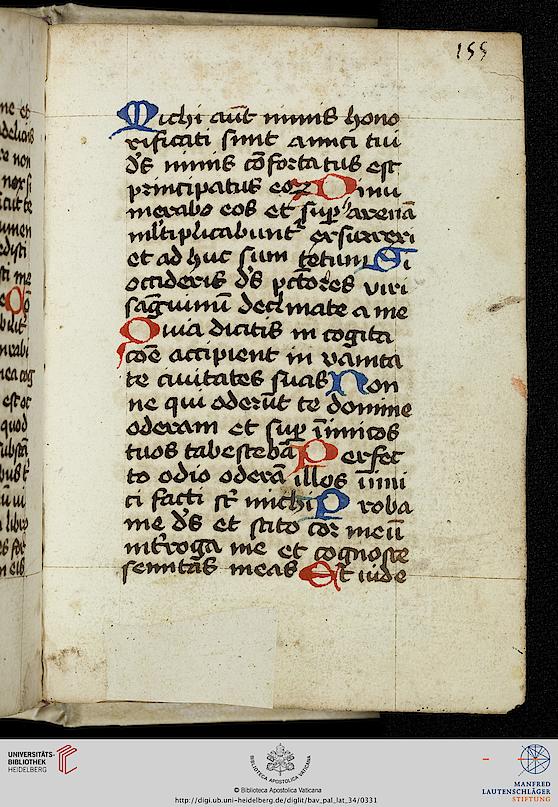 155
Michi aūt nimis hono
rificati sunt amici tui
d̄s nimis cōfortatus est
principatus eoꝝ Dinu
merabo eos et sup̄ arenā
ml̄tiplicabuntᷣ exsurrexi
et ad huc sum tecum Si
occideris d̄s pctōres viri
sāguinū declinate a me
Quia dicitis in cogita
cōe accipient in vanita
te civitates suas Non
ne qui oderūt te domine
oderam et sup̄ īimicos
tuos tabescebā Perfec
to odio oderā illos inimi
ci facti st̄ michi Proba
me d̄s et scito cor meū
int̄roga me et cognosce
semitas meas Et vide
UNIVERSITÄTS-
BIBLIOTHEK
HEIDELBERG
BIBLIOTECA APOSTOLICA VATICANA
© Biblioteca Apostolica Vaticana
http://digi.ub.uni-heidelberg.de/diglit/bav_pal_lat_34/0331
MANFRED
LAUTENSCHLÄGER
STIFTUNG